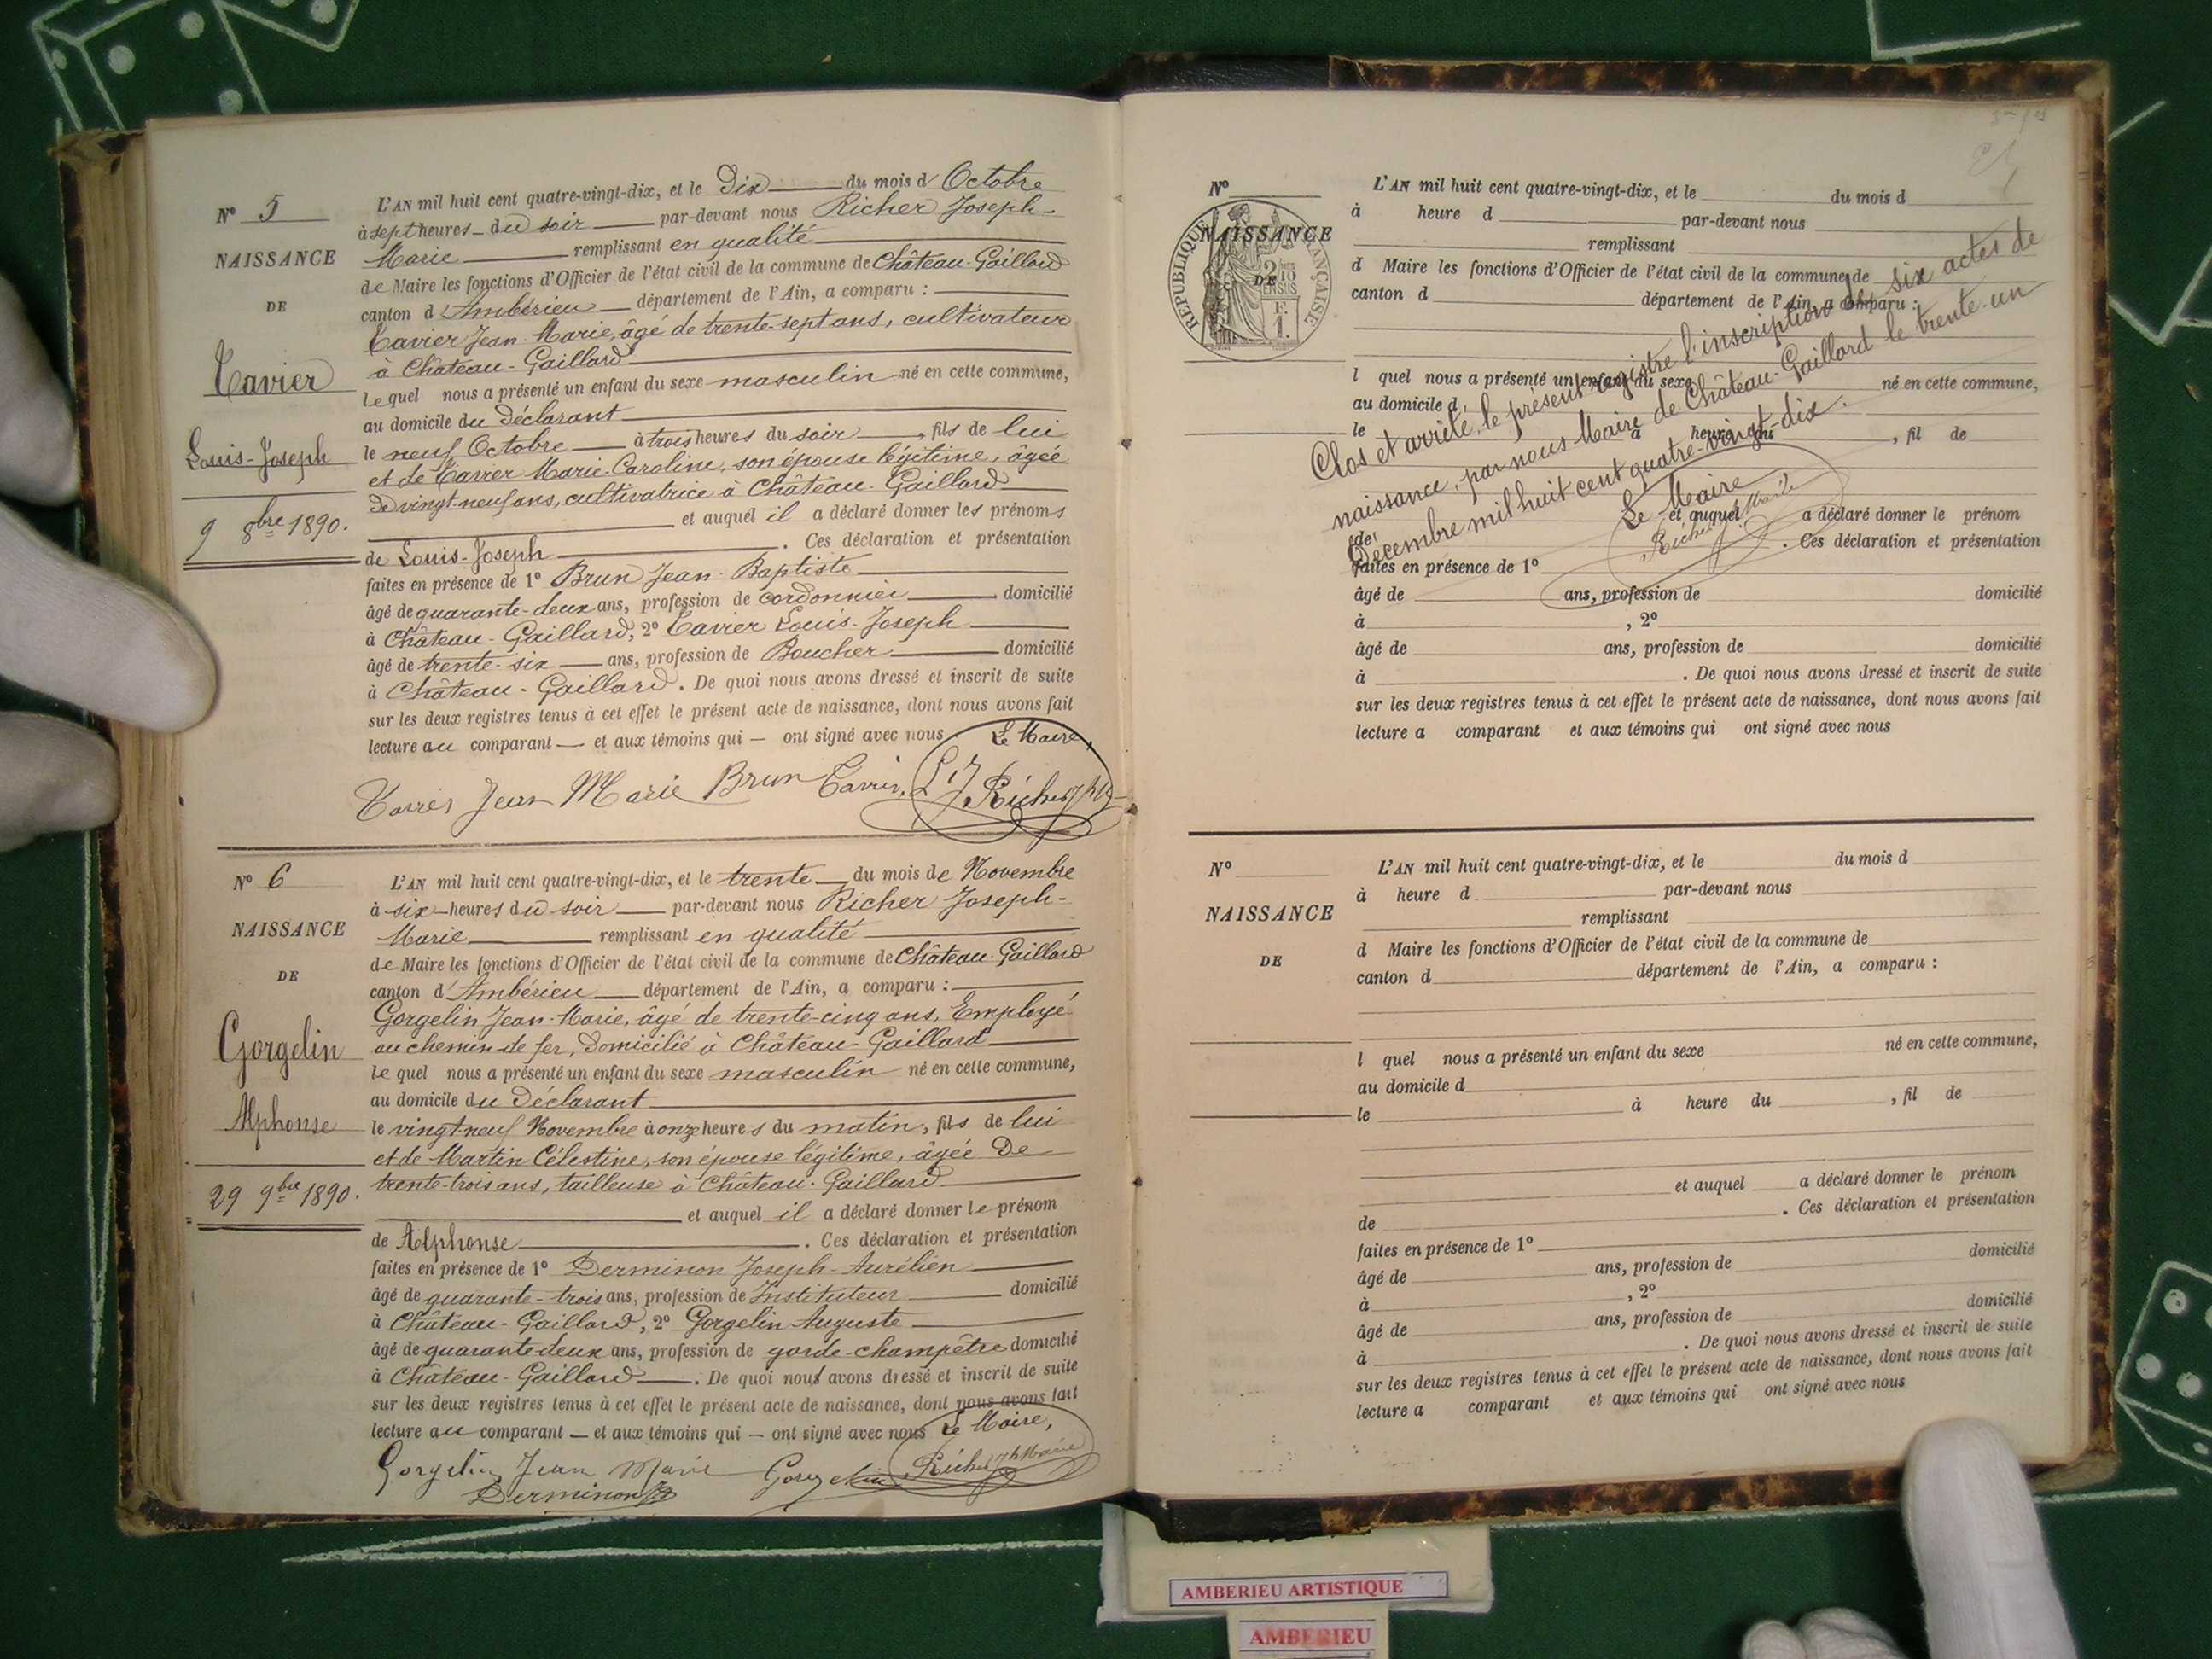 N° 5
NAISSANCE
DE
Tavier
Louis-Joseph
9 8bre 1890.
L'AN mil huit cent quatre-vingt-dix, et le Dix du mois d'Octobre
à sept heures du soir par-devant nous Richer Joseph-
Marie remplissant en qualité
de Maire les fonctions d'Officier de l'état civil de la commune de Château-Gaillard
canton d'Ambérieu département de l'Ain, a comparu :
Tavier Jean-Marie, âgé de trente-sept ans, cultivateur
à Château-Gaillard
Lequel nous a présenté un enfant du sexe masculin né en cette commune,
au domicile du Déclarant
le neuf Octobre à trois heures du soir, fils de lui
et de Tavier Marie-Caroline, son épouse légitime, âgée
de vingt-neuf ans, cultivatrice à Château-Gaillard
et auquel il a déclaré donner les prénoms
de Louis-Joseph. Ces déclaration et présentation
faites en présence de 1° Brun Jean-Baptiste
âgé de quarante-deux ans, profession de cordonnier domicilié
à Château-Gaillard, 2° Tavier Louis-Joseph
âgé de trente-six ans, profession de Boucher domicilié
à Château-Gaillard. De quoi nous avons dressé et inscrit de suite
sur les deux registres tenus à cet effet le présent acte de naissance, dont nous avons fait
lecture au comparant — et aux témoins qui — ont signé avec nous
Le Maire,
Tavier Jean Marie Brun Tavier L J Richer Jh M
N° 6
NAISSANCE
DE
Gorgelin
Alphonse
29 9bre 1890.
L'AN mil huit cent quatre-vingt-dix, et le trente du mois de Novembre
à six heures du soir par-devant nous Richer Joseph-
Marie remplissant en qualité
de Maire les fonctions d'Officier de l'état civil de la commune de Château-Gaillard
canton d'Ambérieu département de l'Ain, a comparu :
Gorgelin Jean-Marie, âgé de trente-cinq ans, Employé
au chemin de fer, Domicilié à Château-Gaillard
Lequel nous a présenté un enfant du sexe masculin né en cette commune,
au domicile du Déclarant
le vingt-neuf Novembre à onze heures du matin, fils de lui
et de Martin Célestine, son épouse légitime, âgée De
trente-trois ans, tailleuse à Château-Gaillard
et auquel il a déclaré donner le prénom
de Alphonse. Ces déclaration et présentation
faites en présence de 1° Derminon Joseph-Aurélien
âgé de quarante-trois ans, profession de Instituteur domicilié
à Château-Gaillard, 2° Gorgelin Auguste
âgé de quarante-deux ans, profession de garde-champêtre domicilié
à Château-Gaillard. De quoi nous avons dressé et inscrit de suite
sur les deux registres tenus à cet effet le présent acte de naissance, dont nous avons fait
lecture au comparant — et aux témoins qui — ont signé avec nous
Le Maire,
Gorgelin Jean Marie Gorgelin Richer Jh Marie
Derminon
N°
RÉPUBLIQUE FRANÇAISE
NAISSANCE
DE
L'AN mil huit cent quatre-vingt-dix, et le du mois d
à heure d par-devant nous
remplissant
d Maire les fonctions d'Officier de l'état civil de la commune de
canton d département de l'Ain, a comparu :
l quel nous a présenté un enfant du sexe né en cette commune,
au domicile d
le à heure du , fil de
et auquel a déclaré donner le prénom
de . Ces déclaration et présentation
faites en présence de 1°
âgé de ans, profession de domicilié
à , 2°
âgé de ans, profession de domicilié
à . De quoi nous avons dressé et inscrit de suite
sur les deux registres tenus à cet effet le présent acte de naissance, dont nous avons fait
lecture a comparant et aux témoins qui ont signé avec nous
Clos et arrêté, le présent registre l'inscription de six actes de
naissance, par nous Maire de Château-Gaillard le trente-un
Décembre mil huit cent quatre-vingt-dix.
Le Maire
Richer Jh Marie
N°
NAISSANCE
DE
L'AN mil huit cent quatre-vingt-dix, et le du mois d
à heure d par-devant nous
remplissant
d Maire les fonctions d'Officier de l'état civil de la commune de
canton d département de l'Ain, a comparu :
l quel nous a présenté un enfant du sexe né en cette commune,
au domicile d
le à heure du , fil de
et auquel a déclaré donner le prénom
de . Ces déclaration et présentation
faites en présence de 1°
âgé de ans, profession de domicilié
à , 2°
âgé de ans, profession de domicilié
à . De quoi nous avons dressé et inscrit de suite
sur les deux registres tenus à cet effet le présent acte de naissance, dont nous avons fait
lecture a comparant et aux témoins qui ont signé avec nous
AMBERIEU ARTISTIQUE
AMBERIEU